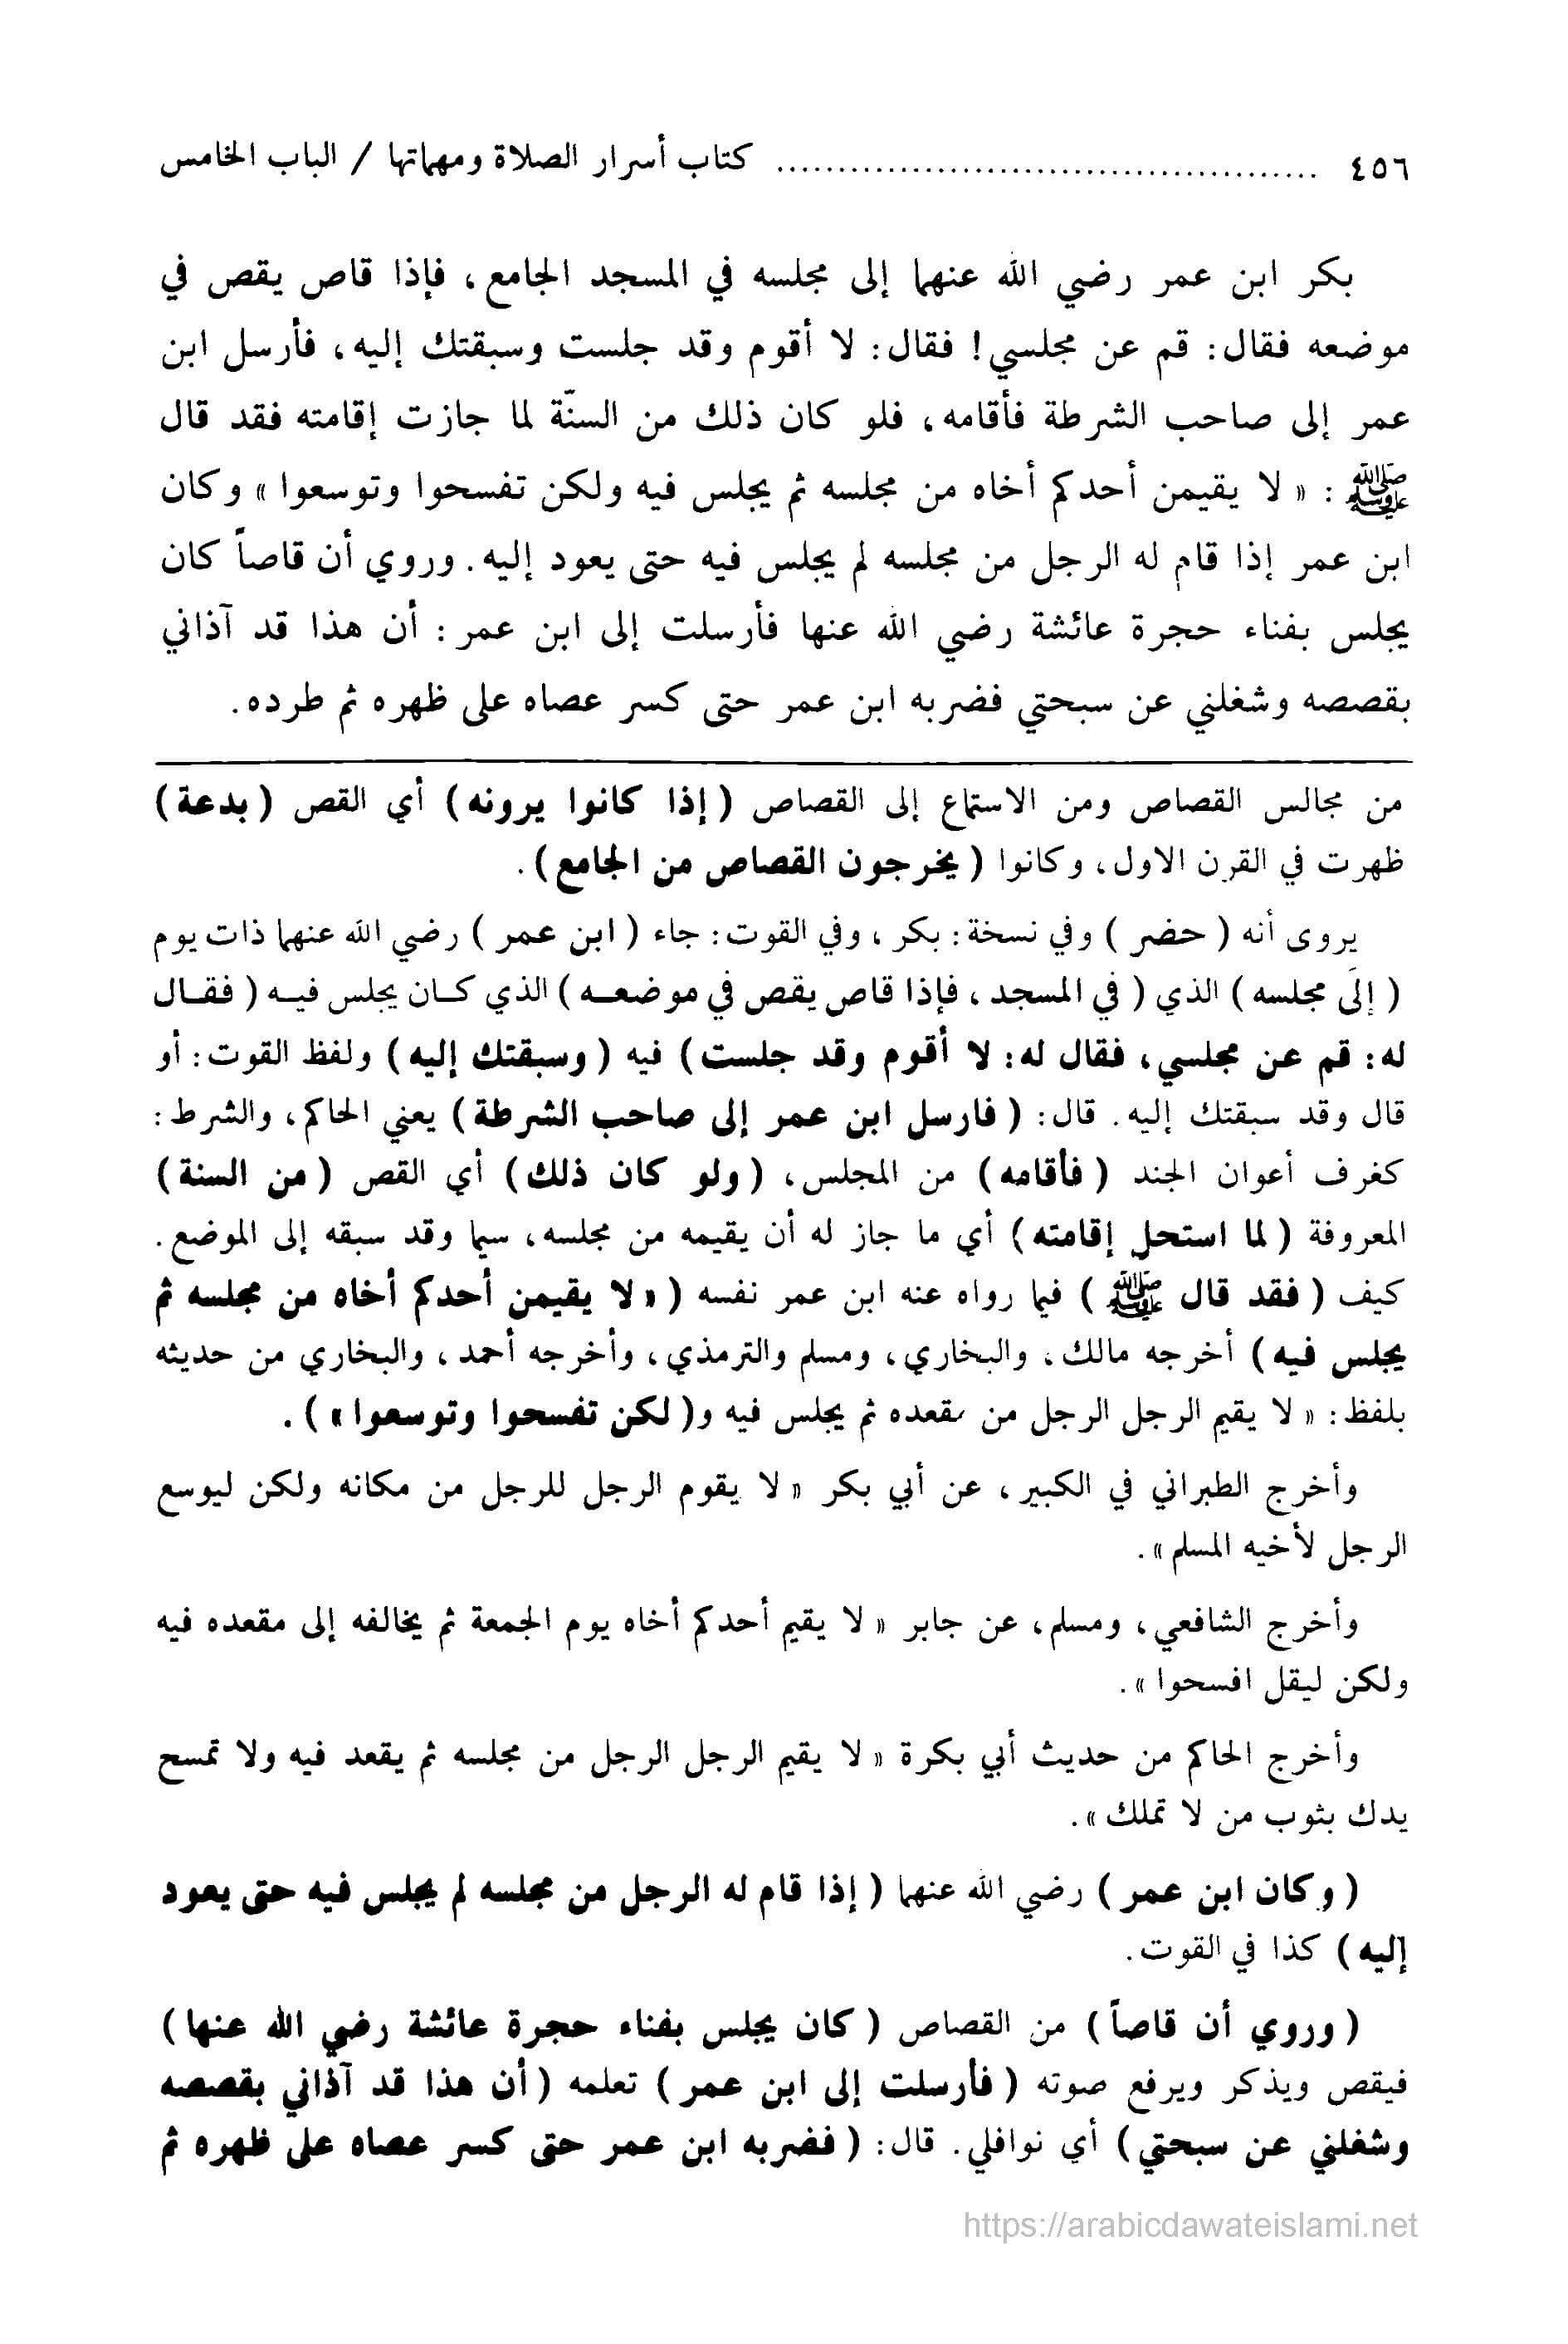 ٤٥٦ .............................................. كتاب أسرار الصلاة ومهماتها / الباب الخامس
بكر ابن عمر رضي الله عنهما إلى مجلسه في المسجد الجامع، فإذا قاص يقص في
موضعه فقال: قم عن مجلسي! فقال: لا أقوم وقد جلست وسبقتك إليه، فأرسل ابن
عمر إلى صاحب الشرطة فأقامه، فلو كان ذلك من السنّة لما جازت إقامته فقد قال
ﷺ : « لا يقيمن أحدكم أخاه من مجلسه ثم يجلس فيه ولكن تفسحوا وتوسعوا » وكان
ابن عمر إذا قام له الرجل من مجلسه لم يجلس فيه حتى يعود إليه. وروي أن قاصاً كان
يجلس بفناء حجرة عائشة رضي الله عنها فأرسلت إلى ابن عمر: أن هذا قد آذاني
بقصصه وشغلني عن سبحتي فضربه ابن عمر حتى كسر عصاه على ظهره ثم طرده.
من مجالس القصاص ومن الاستماع إلى القصاص ( إذا كانوا يرونه ) أي القص ( بدعة )
ظهرت في القرن الاول، وكانوا ( يخرجون القصاص من الجامع ).
يروى أنه ( حضر ) وفي نسخة: بكر، وفي القوت: جاء ( ابن عمر ) رضي الله عنهما ذات يوم
( إلَى مجلسه ) الذي ( في المسجد، فإذا قاص يقص في موضعـه ) الذي كـان يجلس فيـه ( فقـال
له: قم عن مجلسي، فقال له: لا أقوم وقد جلست ) فيه ( وسبقتك إليه ) ولفظ القوت: أو
قال وقد سبقتك إليه. قال: ( فارسل ابن عمر إلى صاحب الشرطة ) يعني الحاكم، والشرط:
كغرف أعوان الجند ( فأقامه ) من المجلس، ( ولو كان ذلك ) أي القص ( من السنة )
المعروفة ( لما استحل إقامته ) أي ما جاز له أن يقيمه من مجلسه، سيما وقد سبقه إلى الموضع.
كيف ( فقد قال ﷺ ) فيما رواه عنه ابن عمر نفسه ( « لا يقيمن أحدكم أخاه من مجلسه ثم
يجلس فيه ) أخرجه مالك، والبخاري، ومسلم والترمذي، وأخرجه أحمد، والبخاري من حديثه
بلفظ: « لا يقيم الرجل الرجل من مقعده ثم يجلس فيه و( لكن تفسحوا وتوسعوا » ) .
وأخرج الطبراني في الكبير، عن أبي بكر « لا يقوم الرجل للرجل من مكانه ولكن ليوسع
الرجل لأخيه المسلم ».
وأخرج الشافعي، ومسلم، عن جابر « لا يقيم أحدكم أخاه يوم الجمعة ثم يخالفه إلى مقعده فيه
ولكن ليقل افسحوا ».
وأخرج الحاكم من حديث أبي بكرة « لا يقيم الرجل الرجل من مجلسه ثم يقعد فيه ولا تمسح
يدك بثوب من لا تملك ».
( وكان ابن عمر ) رضي الله عنهما ( إذا قام له الرجل من مجلسه لم يجلس فيه حتى يعود
إليه ) كذا في القوت.
( وروي أن قاصاً ) من القصاص ( كان يجلس بفناء حجرة عائشة رضي الله عنها )
فيقص ويذكر ويرفع صوته ( فأرسلت إلى ابن عمر ) تعلمه ( أن هذا قد آذاني بقصصه
وشغلني عن سبحتي ) أي نوافلي. قال: ( فضربه ابن عمر حتى كسر عصاه على ظهره ثم
https://arabicdawateislami.net